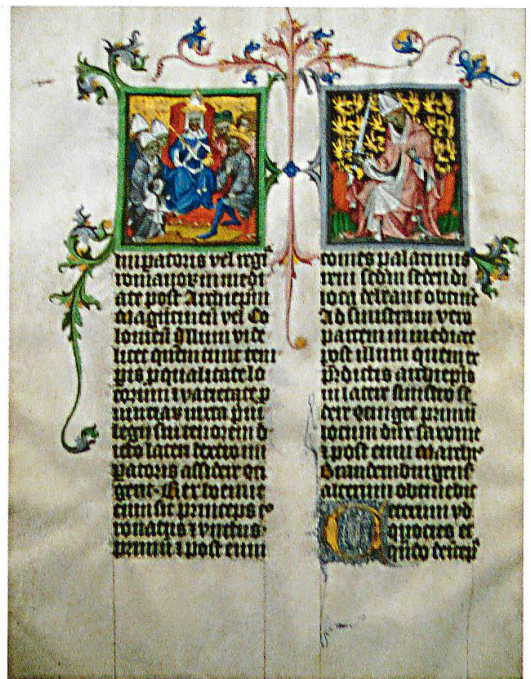 imparatoris vel regꝭ
romanoꝝ inmedi
ate post Archiepm̄
Magūtineñ vel Co
lonieñ illum vide
licet quem tunc tem
pis p qualitate lo
corum ⁊ varietate p
uinciaꝝ iuxta p̄ui
legij sui tenorem d
cto lateri dextro im
patoris assidere 9ti
gerit
cum sit princeps co
ronatus ⁊ vnctus
primū ⁊ post eum
comes palatinus
reni scdm sedendi
loca debeant obtine
Ad sinistram vero
partem inmediate
post illum quem ex
p̄dictis archiepis
in latere sinistro se
dere 9tiget primū
locum dux saxonie
⁊ post eum march
Brandemburgens
alterum obtinebit
Ceterum
quocies et
qn̄do deicepꝭ